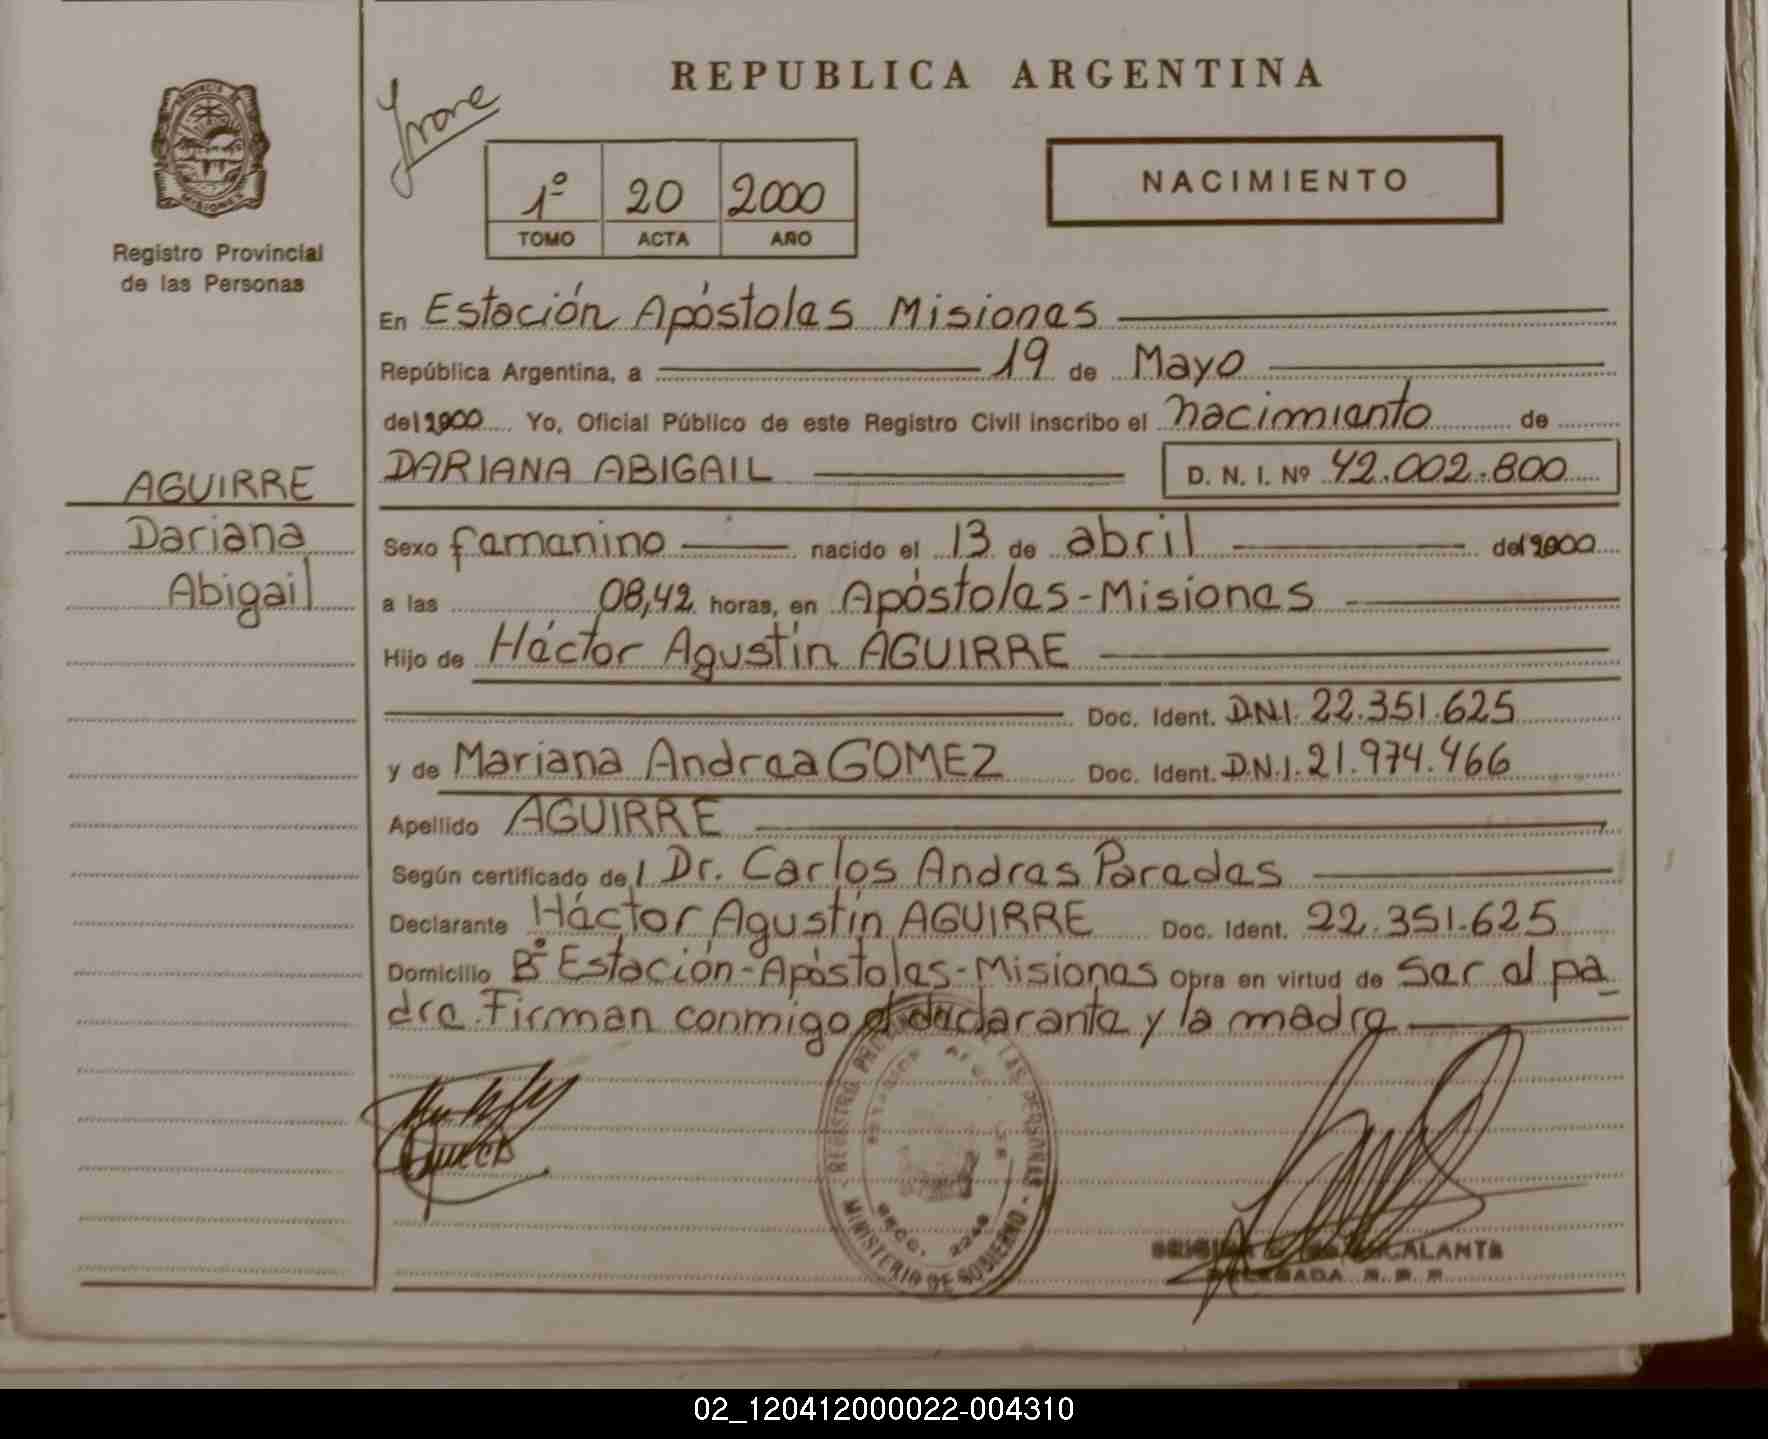 REPUBLICA ARGENTINA
NACIMIENTO
1º 20 2000
TOMO ACTA AÑO
PROVINCIA DE MISIONES
Registro Provincial
de las Personas
AGUIRRE
Dariana
Abigail
En Estación Apóstoles Misiones
República Argentina, a 19 de Mayo
del 2000 Yo, Oficial Público de este Registro Civil inscribo el nacimiento de
DARIANA ABIGAIL D. N. I. Nº 42.002.800
Sexo femenino nacido el 13 de abril del 2000
a las 08,42 horas, en Apóstoles - Misiones
Hijo de Héctor Agustín AGUIRRE
Doc. Ident. D.N.I. 22.351.625
y de Mariana Andrea GOMEZ Doc. Ident. D.N.I. 21.974.466
Apellido AGUIRRE
Según certificado del Dr. Carlos Andres Paredes
Declarante Héctor Agustín AGUIRRE Doc. Ident. 22.351.625
Domicilio Bº Estación - Apóstoles - Misiones Obra en virtud de ser el pa
dre. Firman conmigo el declarante y la madre
REGISTRO PROVINCIAL DE LAS PERSONAS
MINISTERIO DE GOBIERNO
SECC. 2248
DELEGADA R. P. P.
02_120412000022-004310